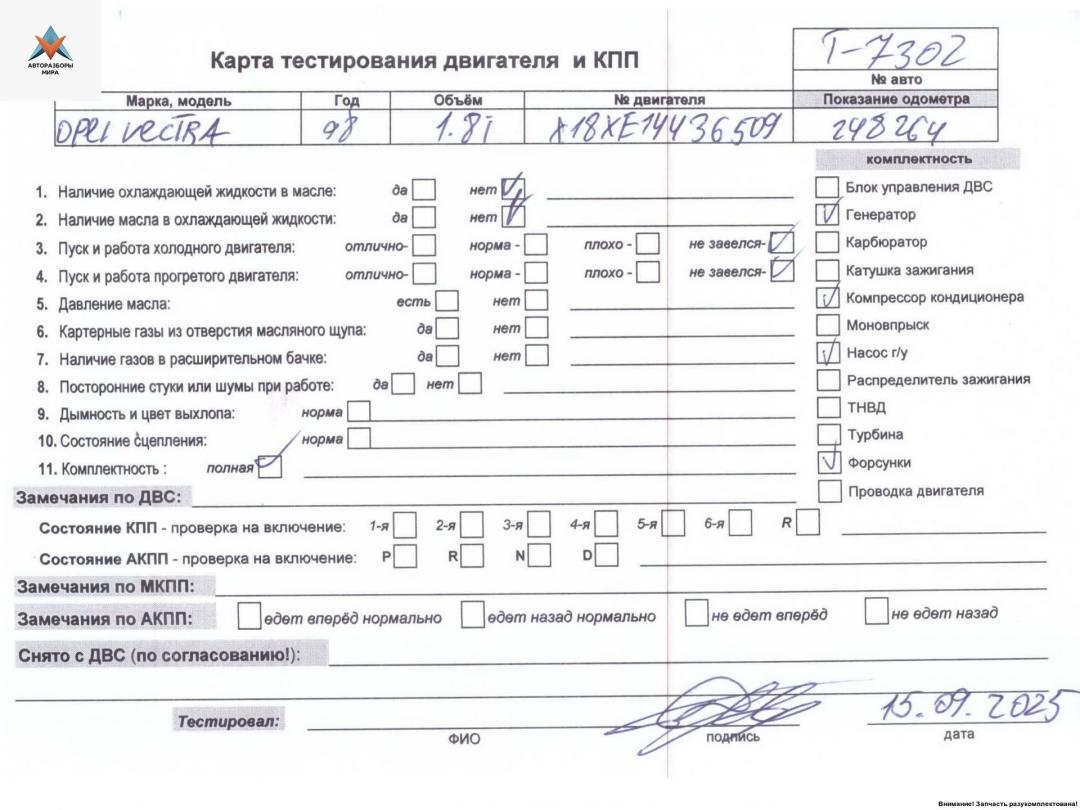 АВТОРАЗБОРЫ
МИРА
Карта тестирования двигателя и КПП
T-7302
№ авто
Марка, модель Год Объём № двигателя Показание одометра
OPEL VECTRA 98 1.8i X18XE14436509 248264
комплектность
1. Наличие охлаждающей жидкости в масле: да нет
2. Наличие масла в охлаждающей жидкости: да нет
3. Пуск и работа холодного двигателя: отлично- норма - плохо - не завелся-
4. Пуск и работа прогретого двигателя: отлично- норма - плохо - не завелся-
5. Давление масла: есть нет
6. Картерные газы из отверстия масляного щупа: да нет
7. Наличие газов в расширительном бачке: да нет
8. Посторонние стуки или шумы при работе: да нет
9. Дымность и цвет выхлопа: норма
10. Состояние сцепления: норма
11. Комплектность : полная
Блок управления ДВС
Генератор
Карбюратор
Катушка зажигания
Компрессор кондиционера
Моновпрыск
Насос г/у
Распределитель зажигания
ТНВД
Турбина
Форсунки
Проводка двигателя
Замечания по ДВС:
Состояние КПП - проверка на включение: 1-я 2-я 3-я 4-я 5-я 6-я R
Состояние АКПП - проверка на включение: P R N D
Замечания по МКПП:
Замечания по АКПП: едет вперёд нормально едет назад нормально не едет вперёд не едет назад
Снято с ДВС (по согласованию!):
Тестировал:
15.09.2025
ФИО подпись дата
Внимание! Запчасть разукомплектована!